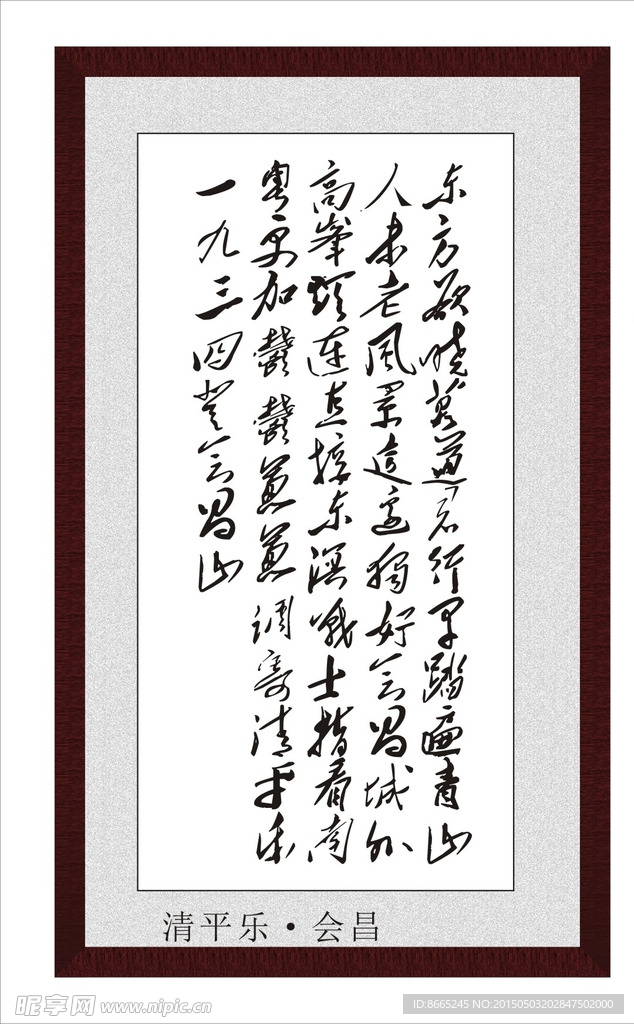 东方欲晓莫道君行早踏遍青山
人未老风景这边独好会昌城外
高峰头连直接东溟战士指看南
粤更加鬱鬱葱葱调寄清平乐
一九三四登会昌山
清平乐·会昌
昵享网 www.nipic.cn
ID:8665245 NO:20150503202847502000